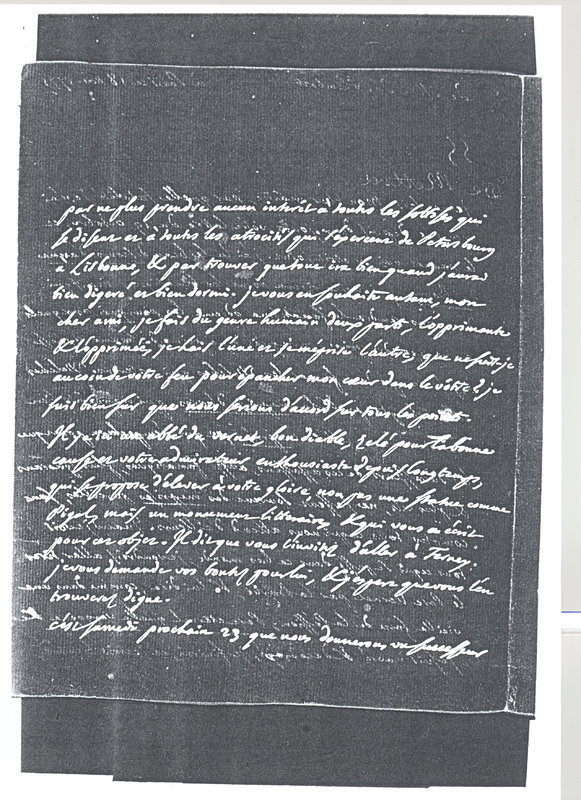 par ne plus prendre aucun interêt à toutes les sottises qui
se disent et à toutes les atrocités qui s'exercent de Petersbourg
à Lisbonne, & par trouver que tout ira bien quand j'aurai
bien digeré et bien dormi. je vous en souhaite autant, mon
cher ami, je fais du genre humain deux parts, l'opprimante
& l'opprimée, je hais l'une et je méprise l'autre; que ne suis-je
au coin de votre feu pour épancher mon cœur dans le vôtre ? je
suis bien sur que nous serions d'acord sur tous les points.
Il y a ici un abbé du vernet, bon diable, zelé pour la bonne
cause, votre admirateur enthousiaste depuis longtemps,
qui se propose d'élever à votre gloire, non pas une statue comme
Pigal, mais un monument litteraire, & qui vous a écrit
pour cet objet. Il dit que vous l'invitez d'aller à Ferney.
je vous demande vos bontés pour lui, & j'espère que vous l'en
trouverez digne.
c'est samedi prochain 23 que nous donnerons un successeur